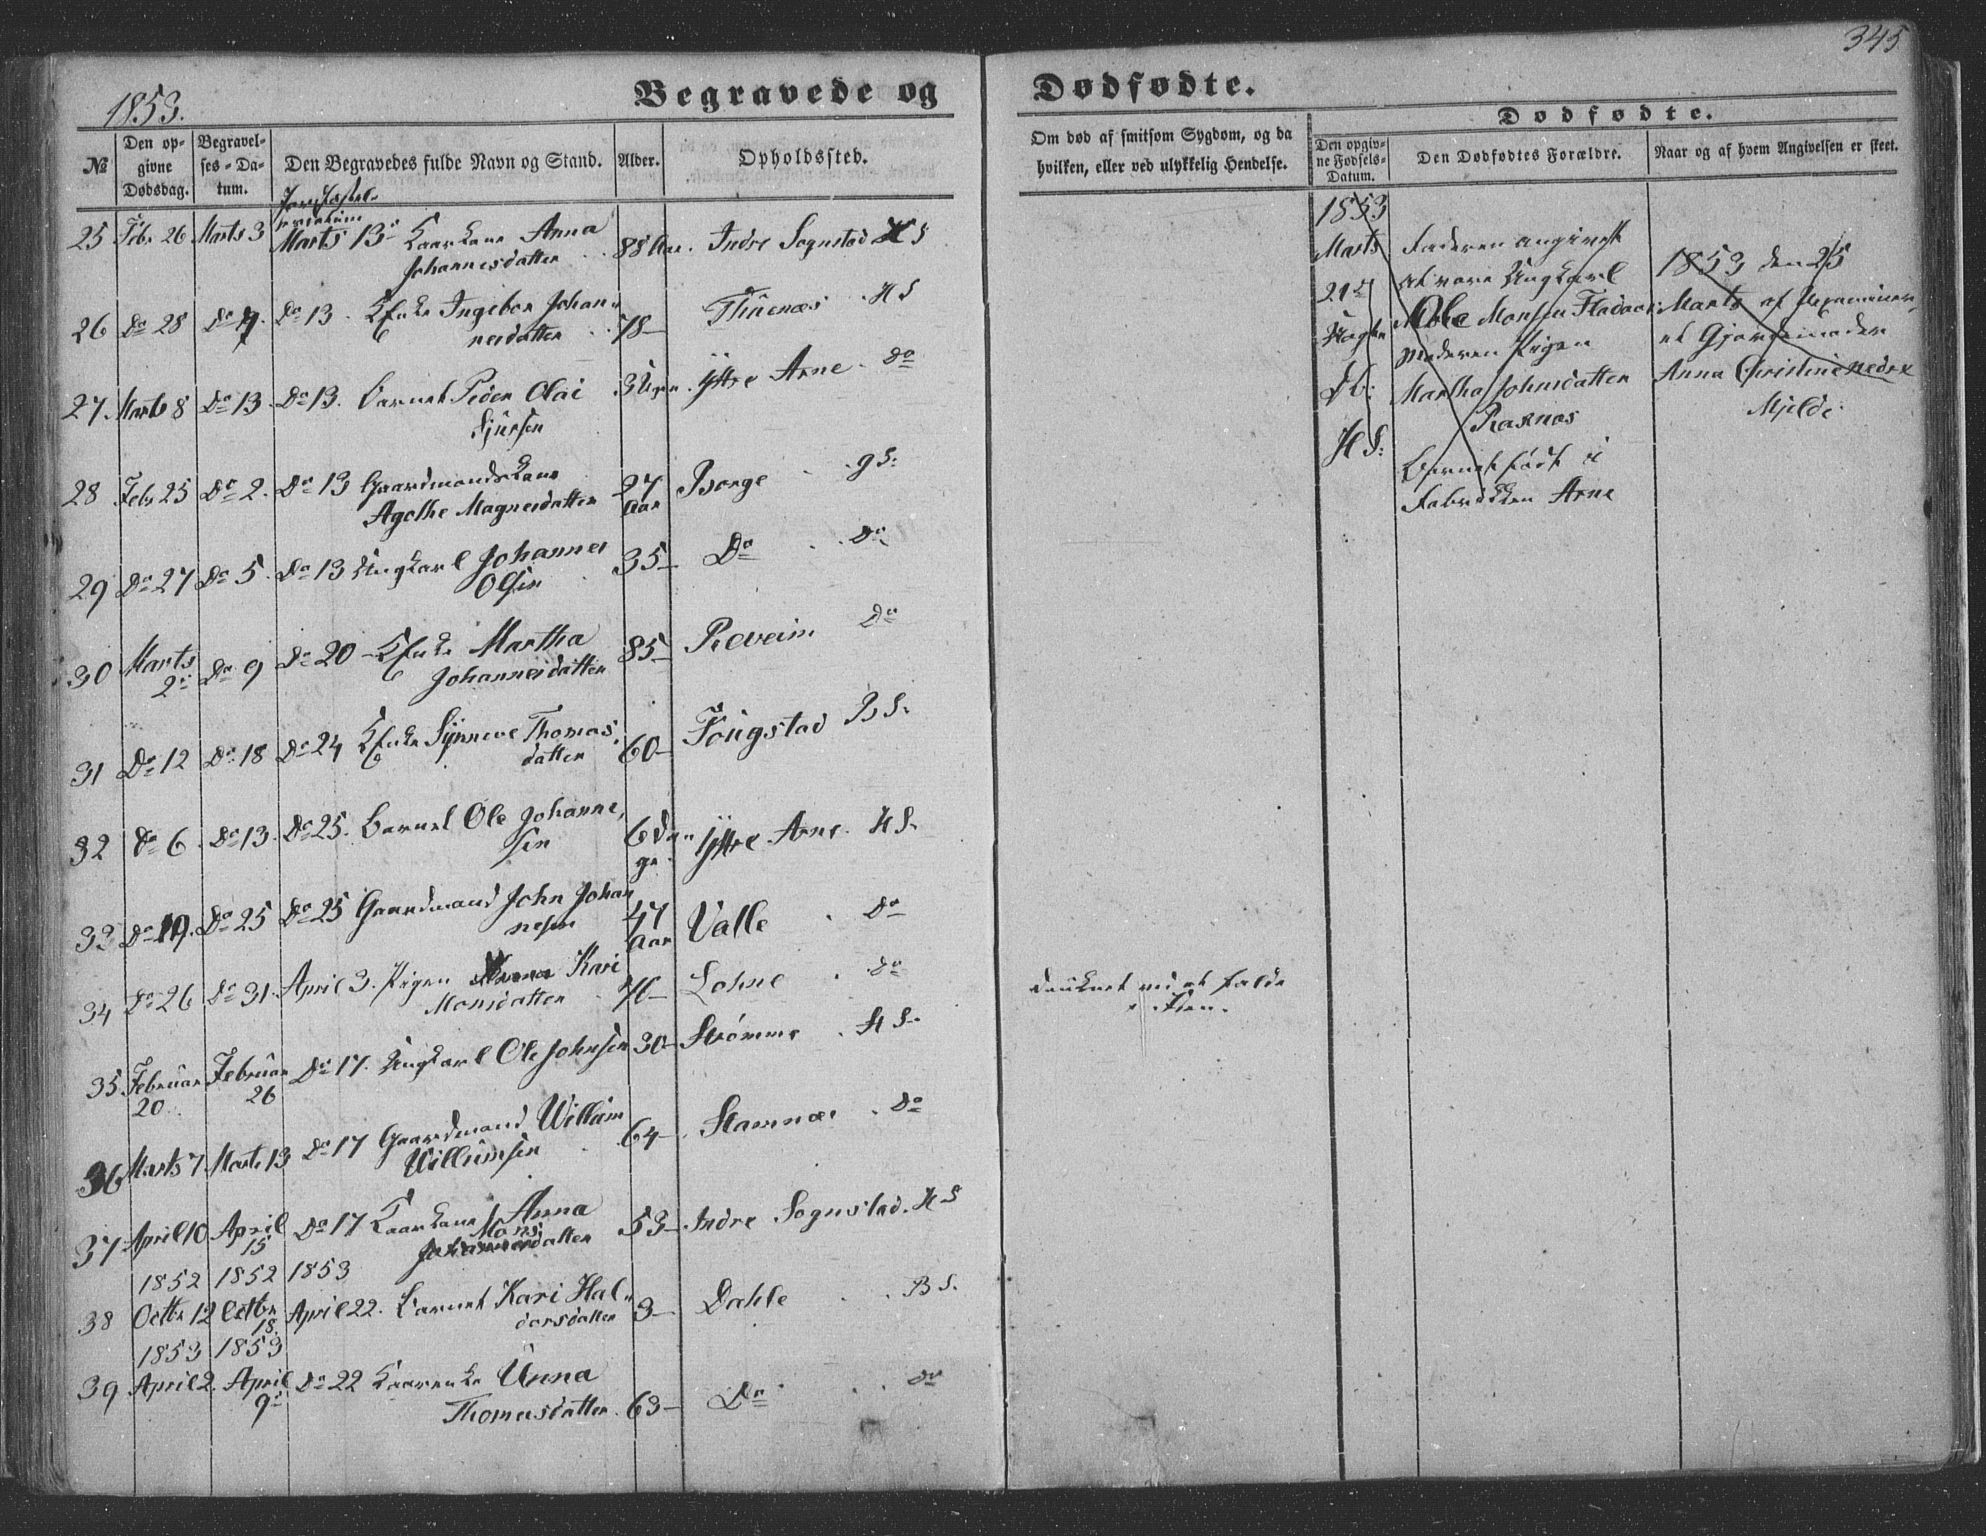 345
1853.
Begravede og Dødfødte.
Dødfødte.
№
Den op-
givne
Dødsdag.
Begravel-
ses-Da-
tum.
Den Begravedes fulde Navn og Stand.
Alder.
Opholdssted.
Om død af smitsom Sygdom, og da
hvilken, eller ved ulykkelig Hendelse.
Den opgiv-
ne Fødsels-
Datum.
Den Dødfødtes Forældre.
Naar og af hvem Angivelsen er skeet.
25 Febr 26 Marts 3 Marts 13 Kaarkone Anna 88 Aar. Indre Sognstad H S
Johannesdatter
26 Do 28 Do 7. Do 13 Enke Ingebor Johan- 78— Thunes H S
nesdatter
27 Marts 8 Do 13 Do 13. Barnet Peder Olai 3 Uger Yttre Arne Do
Sjursen
28 Febr 25 Do 2. Do 13 Gaardmandskone 27 Borge g S:
Agathe Magnesdatter Aar
29 Do 27 Do 5. Do 13 Ungkarl Johannes 35— Do Do
Olsen
30 Marts Do 9 Do 20 Enke Martha 85— Reveim Do
2 Johannesdatter
31 Do 12 Do 18 Do 24 Enke Synneve Thomas 60— Fougstad B S.
datter
32 Do 6. Do 13. Do 25. Barnet Ole Johanne, 6 Da- Yttre Arne. H S.
sen ge
33 Do 19. Do 25 Do 25 Gaardmand John Johan 47 Valle Do
nesen Aar
34 Do 26 Do 31. April 3. Pigen Kari 76— Lohne Do
Monsdatter
druknet ved at falde
i Søen.
35 Februar Februar Do 17. Ungkarl Ole Johnsen 30— Strømme H S.
20 26
36 Marts 7 Marts 13 Do 17 Gaardmand Willum 64— Stamnæs Do
Willumsen
37 April 10 April Do 17 Kaarkone Anna 53— Indre Sognstad. H S
15 Mons
datter
1852 1852 1853
38 Octbr 12 Octbr April 22. Barnet Kari Hal- 3— Dahle B S.
18. dorsdatter
1853 1853
39 April 2. April Do 22 Kaarenke Anna 63— Do Do
9 Thomasdatter
1853
Marts
21
Db:
H S:
Faderen angivet
at være Ungkarl
Ole Monsen Fladaas
Moderen Pigen
Martha Johnsdatter
Raknæs
Barnet født i
Fabrikken Arne
1853 den 25
Marts af Examiner,
et Gjordemoder
Anna Christine nedre
Mjelde.